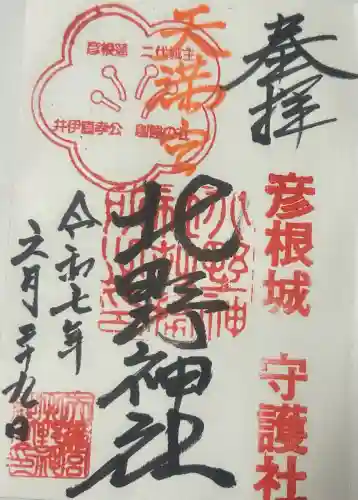 奉拝
彦根城 守護社
天満宮
彦根藩 二代城主
井伊直孝公 創建の社
北野神社
令和七年
六月二十九日